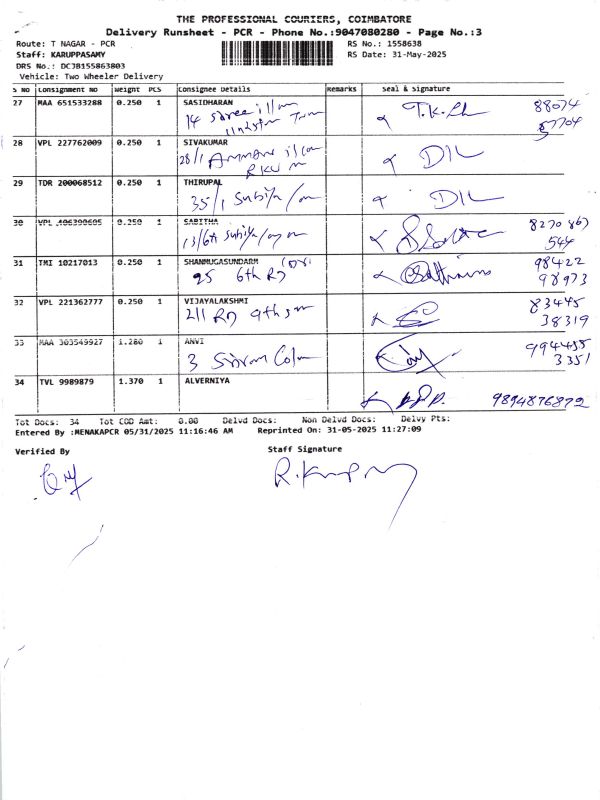 THE PROFESSIONAL COURIERS, COIMBATORE
Delivery Runsheet - PCR - Phone No.:9047080280 - Page No.:3
Route: T NAGAR - PCR RS No.: 1558638
Staff: KARUPPASAMY RS Date: 31-May-2025
DRS No.: DCJB155863803
Vehicle: Two Wheeler Delivery
S NO Consignment NO Weight PCS Consignee Details Remarks Seal & Signature
27 MAA 651533288 0.250 1 SASIDHARAN
14 88074
57704
28 VPL 227762009 0.250 1 SIVAKUMAR
28/1 DIL
29 TDR 200068512 0.250 1 THIRUPAL
35/1 DIL
30 VPL 406390605 0.250 1 SABITHA 8270 867
13/6A 544
31 TMI 10217013 0.250 1 SHANMUGASUNDARM 98422
95 6th RD 98973
32 VPL 221362777 0.250 1 VIJAYALAKSHMI 83445
211 RD 9th 38319
33 MAA 303549927 1.280 1 ANVI 994435
3 3351
34 TVL 9989879 1.370 1 ALVERNIYA
9894876872
Tot Docs: 34 Tot COD Amt: 0.00 Delvd Docs: Non Delvd Docs: Delvy Pts:
Entered By :MENAKAPCR 05/31/2025 11:16:46 AM Reprinted On: 31-05-2025 11:27:09
Verified By Staff Signature